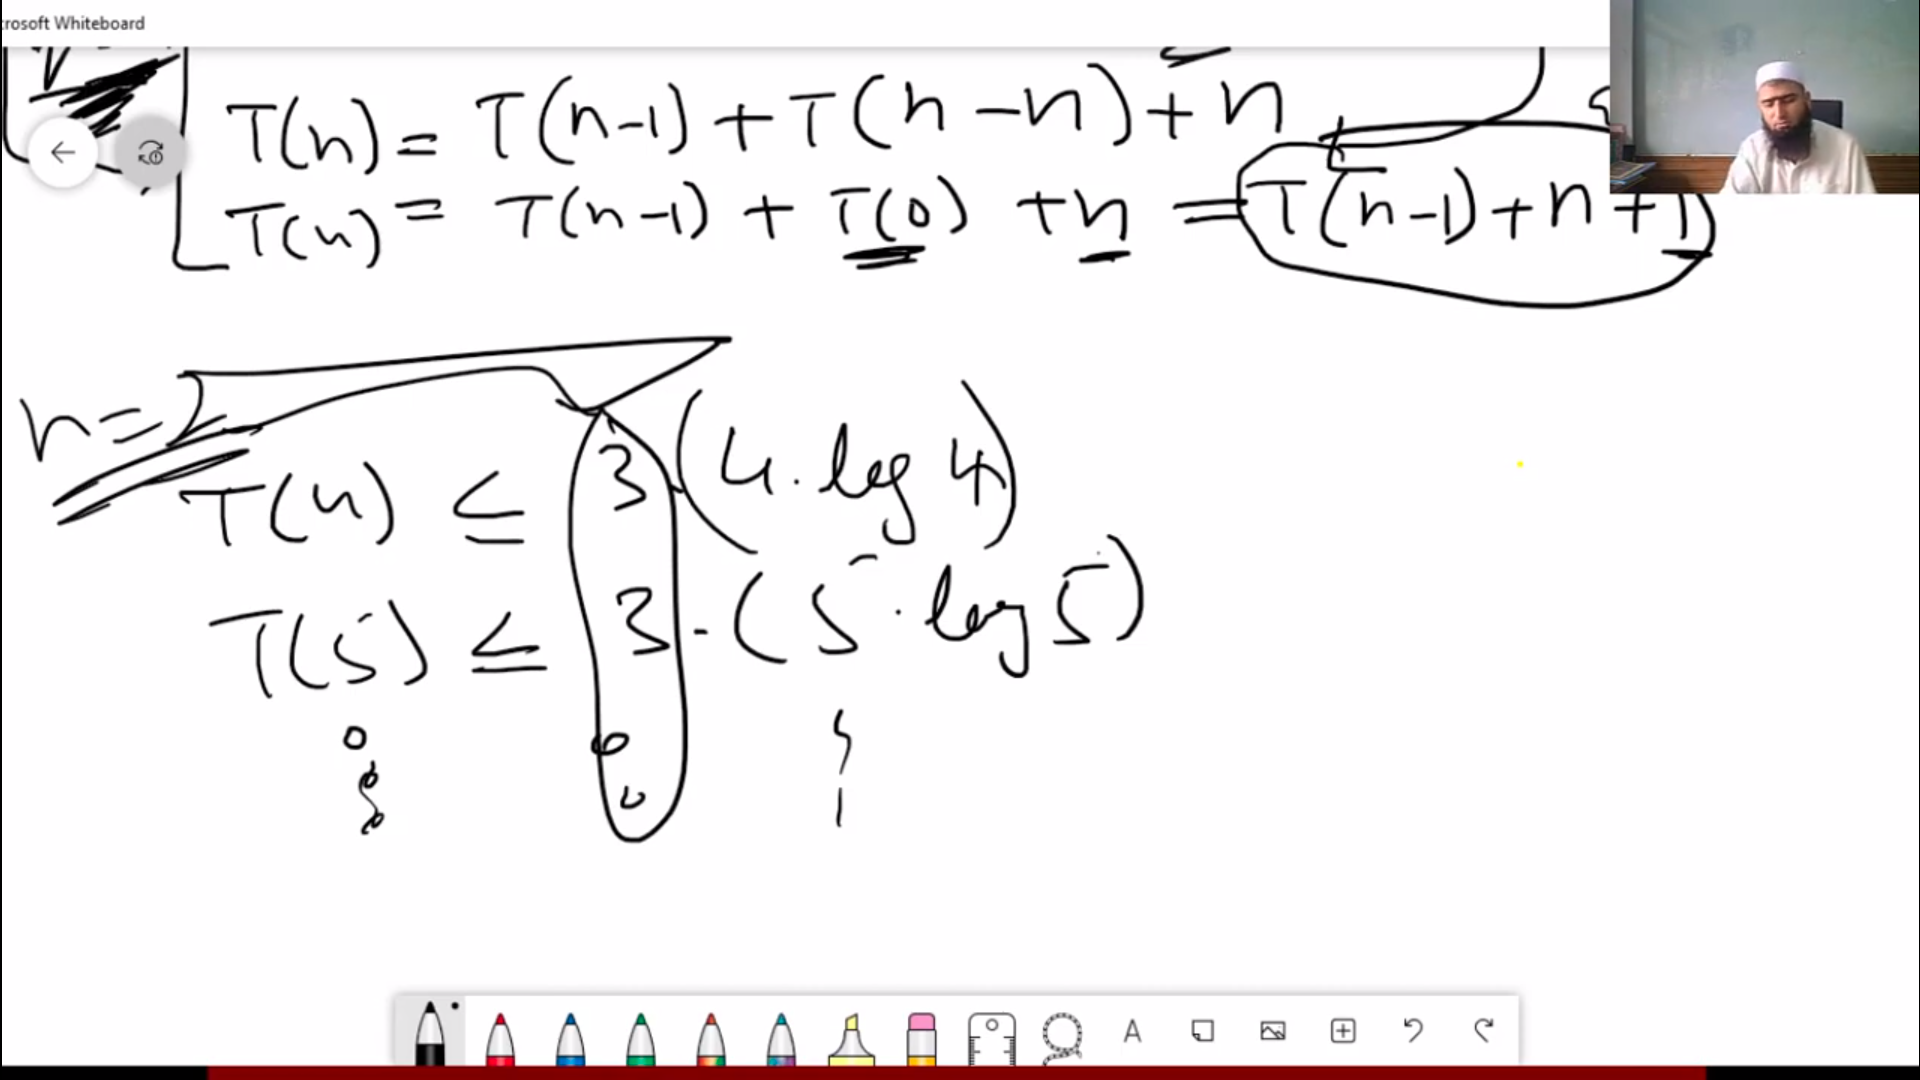 crosoft Whiteboard
T(n) = T(n-1) + T(n-n) + n
T(n) = T(n-1) + T(0) + n = T(n-1) + n + 1
n = 2
T(4) ≤ 3 · (4 · log 4)
T(5) ≤ 3 · (5 · log 5)
A